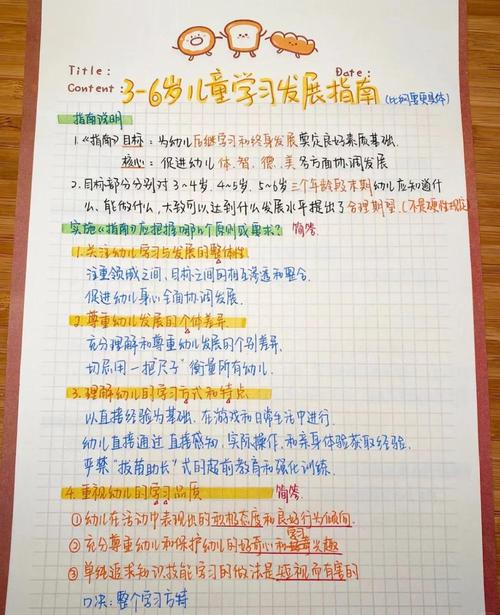 Title:
Date:
Content: 3-6岁儿童学习发展指南 (比纲要更具体)
指南说明
1.《指南》目标：为幼儿后继学习和终身发展奠定良好素质基础.
核心：促进幼儿体.智.德.美各方面协调发展
2.目标部分分别对3~4岁.4~5岁.5~6岁三个年龄段末期幼儿应知道什
么.能做什么，大致可以达到什么发展水平提出了合理期望.(不是硬性规定)
实施《指南》应把握哪几个原则或要求？ 简答.
1.关注幼儿学习与发展的整体性
注重领域之间.目标之间的相互渗透和整合.
促进幼儿身心全面协调发展.
2.尊重幼儿发展的个体差异.
充分理解和尊重幼儿发展的个别差异.
切忌用一把"尺子"衡量所有幼儿.
3.理解幼儿的学习方式和特点
以直接经验为基础.在游戏和日常生活中进行.
幼儿直接通过直接感知.实际操作.和亲身体验获取经验.
严禁"揠苗助长"式的超前教育和强化训练.
4.重视幼儿的学习品质 简答
①幼儿在活动中表现出的积极态度和良好行为倾向.
②充分尊重幼儿和保护幼儿的好奇心和学习兴趣
③单纯追求知识技能学习的做法是短视而有害的
口决：整个学习方特